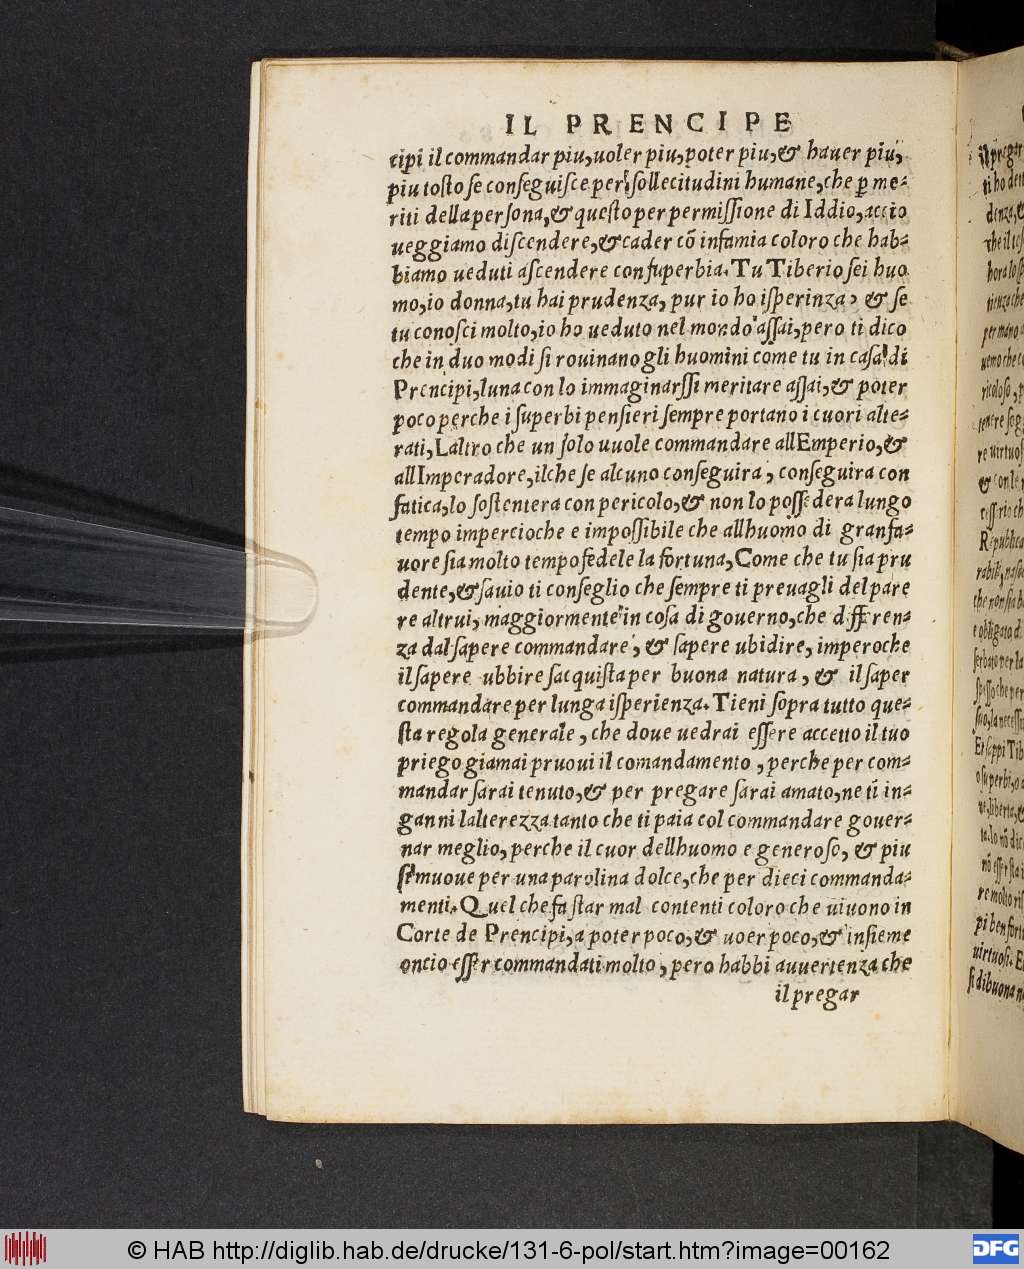 IL PRENCIPE
cipi il commandar piu, uoler piu, poter piu, & hauer piu,
piu tosto se conseguisce per sollecitudini humane, che p me-
riti della persona, & questo per permissione di Iddio, accio
ueggiamo discendere, & cader cõ infamia coloro che hab-
biamo ueduti ascendere con superbia. Tu Tiberio sei huo
mo, io donna, tu hai prudenza, pur io ho isperinza, & se
tu conosci molto, io ho ueduto nel mondo assai, pero ti dico
che in duo modi si rouinano gli huomini come tu in casa di
Prencipi, luna con lo immaginarssi meritare assai, & poter
poco perche i superbi pensieri sempre portano i cuori alte-
rati, Laltro che un solo uuole commandare allEmperio, &
allImperadore, ilche se alcuno conseguira, conseguira con
fatica, lo sostentera con pericolo, & non lo possedera lungo
tempo impercioche e impossibile che allhuomo di gran fa-
uore sia molto tempo fedele la fortuna, Come che tu sia pru
dente, & sauio ti conseglio che sempre ti preuagli del pare
re altrui, maggiormente in cosa di gouerno, che differen-
za dal sapere commandare, & sapere ubidire, imperoche
il sapere ubbire sacquista per buona natura, & il saper
commandare per lunga isperienza. Tieni sopra tutto que-
sta regola generale, che doue uedrai essere accetto il tuo
priego giamai pruoui il comandamento, perche per com-
mandar sarai tenuto, & per pregare sarai amato, ne ti in-
ganni lalterezza tanto che ti paia col commandare gouer-
nar meglio, perche il cuor dellhuomo e generoso, & piu
si muoue per una parolina dolce, che per dieci commanda-
menti. Quel che fa star mal contenti coloro che uiuono in
Corte de Prencipi, a poter poco, & uoer poco, & insieme
oncio esser commandati molto, pero habbi auuertenza che
il pregar
il pregar
ti ho dett
denza, &
che il tes
hora lo sp
tienza che
per mano
uemo che
ricoloso, p
tenere seg
re uirtuos
& con le
cessario ch
Republica
rabile, nasce
che non sia b
e obligato d
serbato per la
spesso che per
suo, la necessi
Et sappi Tib
o superbi, o a
ue, liberta, &
ta. lo nõ dic
nõ esser sta
re molto ris
pi ben fort
uirtuosi. E
si di buona n
© HAB http://diglib.hab.de/drucke/131-6-pol/start.htm?image=00162
DFG